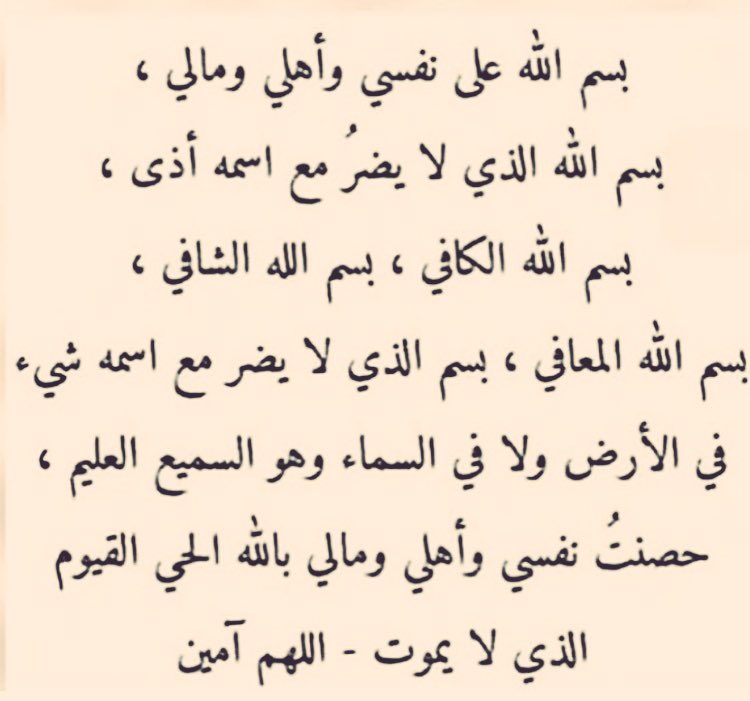 بسم الله على نفسي وأهلي ومالي ،
بسم الله الذي لا يضرُ مع اسمه أذى ،
بسم الله الكافي ، بسم الله الشافي ،
بسم الله المعافي ، بسم الذي لا يضر مع اسمه شيء
في الأرض ولا في السماء وهو السميع العليم ،
حصنتُ نفسي وأهلي ومالي بالله الحي القيوم
الذي لا يموت - اللهم آمين